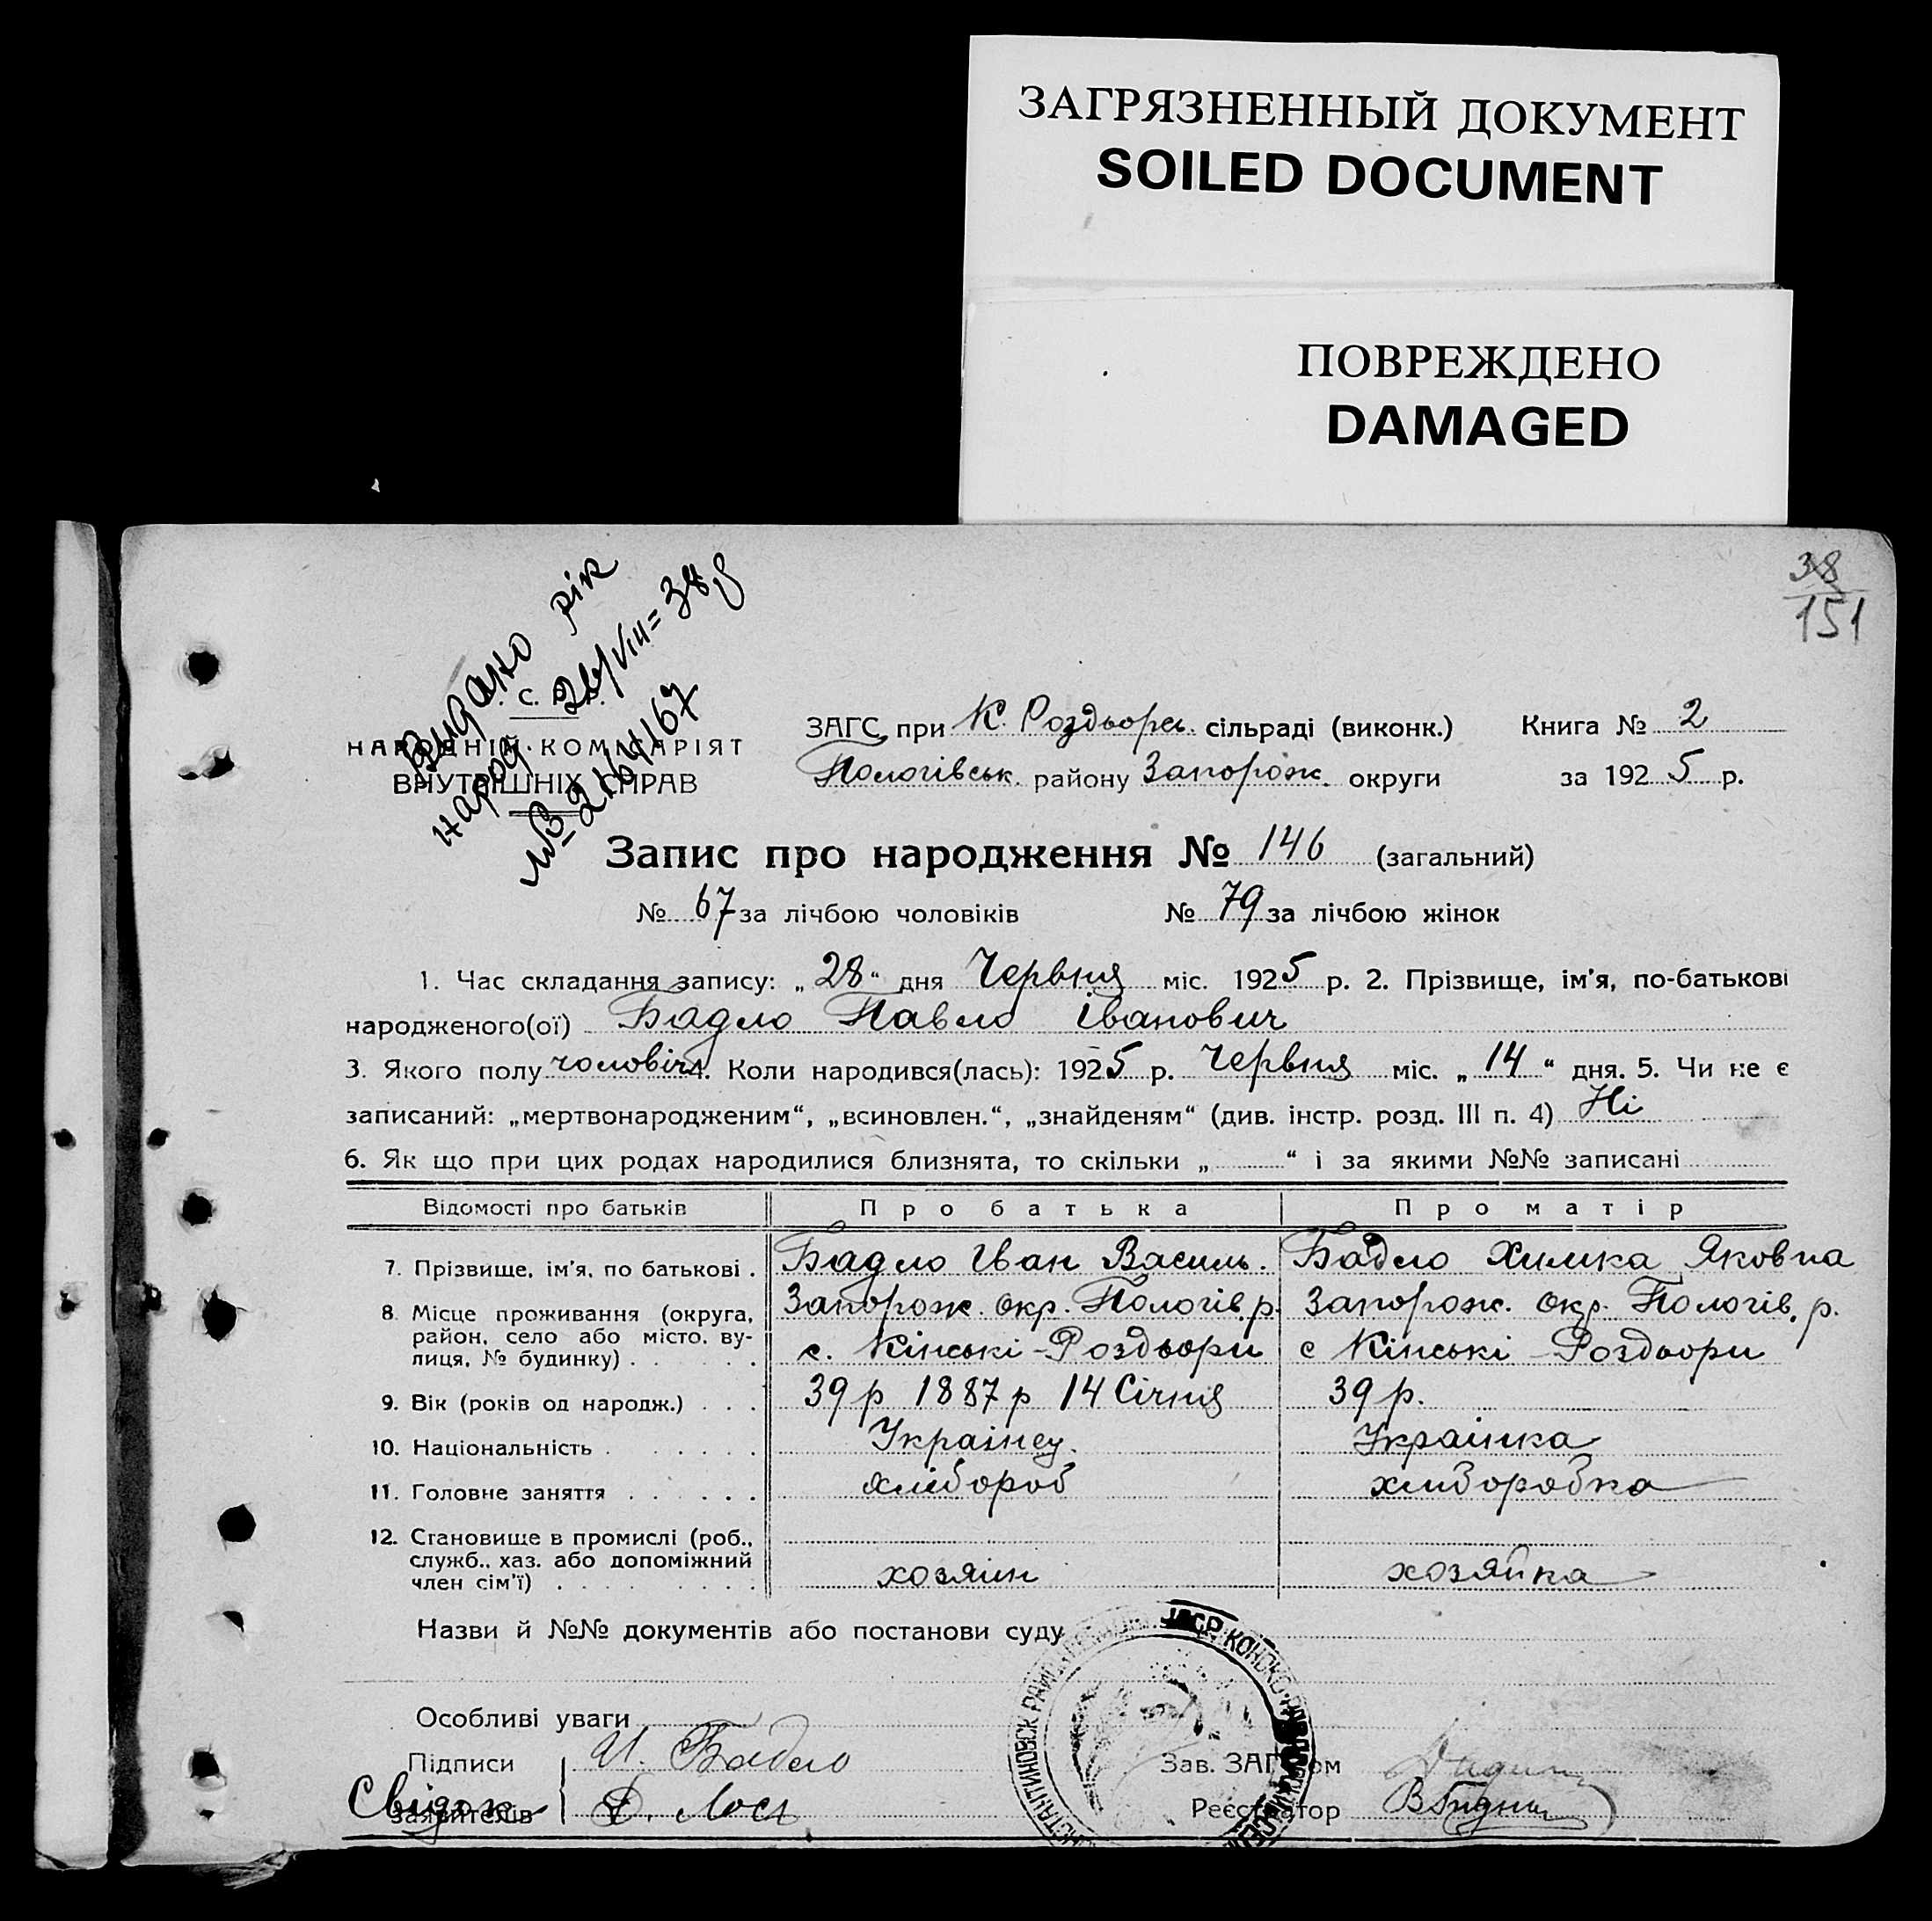 ЗАГРЯЗНЕННЫЙ ДОКУМЕНТ
SOILED DOCUMENT
ПОВРЕЖДЕНО
DAMAGED
38
151
Видано рік
народ. 26/VIII=38р
№ 2164167
НАРОДНІЙ КОМІСАРІЯТ
ВНУТРІШНІХ СПРАВ
ЗАГС при К. Роздворск. сільраді (виконк.) Книга № 2
Пологівськ. району Запорож. округи за 1925 р.
Запис про народження № 146 (загальний)
№ 67 за лічбою чоловіків № 79 за лічбою жінок
1. Час складання запису: „28“ дня Червня міс. 1925 р. 2. Прізвище, ім’я, по-батькові
народженого(ої) Бадло Павло Іванович
3. Якого полу чоловіч. 4. Коли народився(лась): 1925 р. Червня міс. „14“ дня. 5. Чи не є
записаний: „мертвонародженим“, „всиновлен.“, „знайденям“ (див. інстр. розд. III п. 4) Ні
6. Як що при цих родах народилися близнята, то скільки „ “ і за якими №№ записані
Відомості про батьків Про батька Про матір
7. Прізвище, ім’я, по батькові . Бадло Іван Василь. Бадло Химка Яковна
8. Місце проживання (округа, район, село або місто, вулиця, № будинку) Запорож. окр. Пологів. р. с. Кінські-Роздори Запорож. окр. Пологів. р. с Кінські-Роздори
9. Вік (років од народж.) . . . 39 р 1887 р 14 Січня 39 р.
10. Національність . Українец. Українка
11. Головне заняття . . . . . . хлібороб хліборобка
12. Становище в промислі (роб., служб., хаз. або допоміжний член сім’ї) хозяин хозяйка
Назви й №№ документів або постанови суду
Особливі уваги
Підписи И. Бадло Зав. ЗАГСом
Свідок заявителів Лось Реєстратор